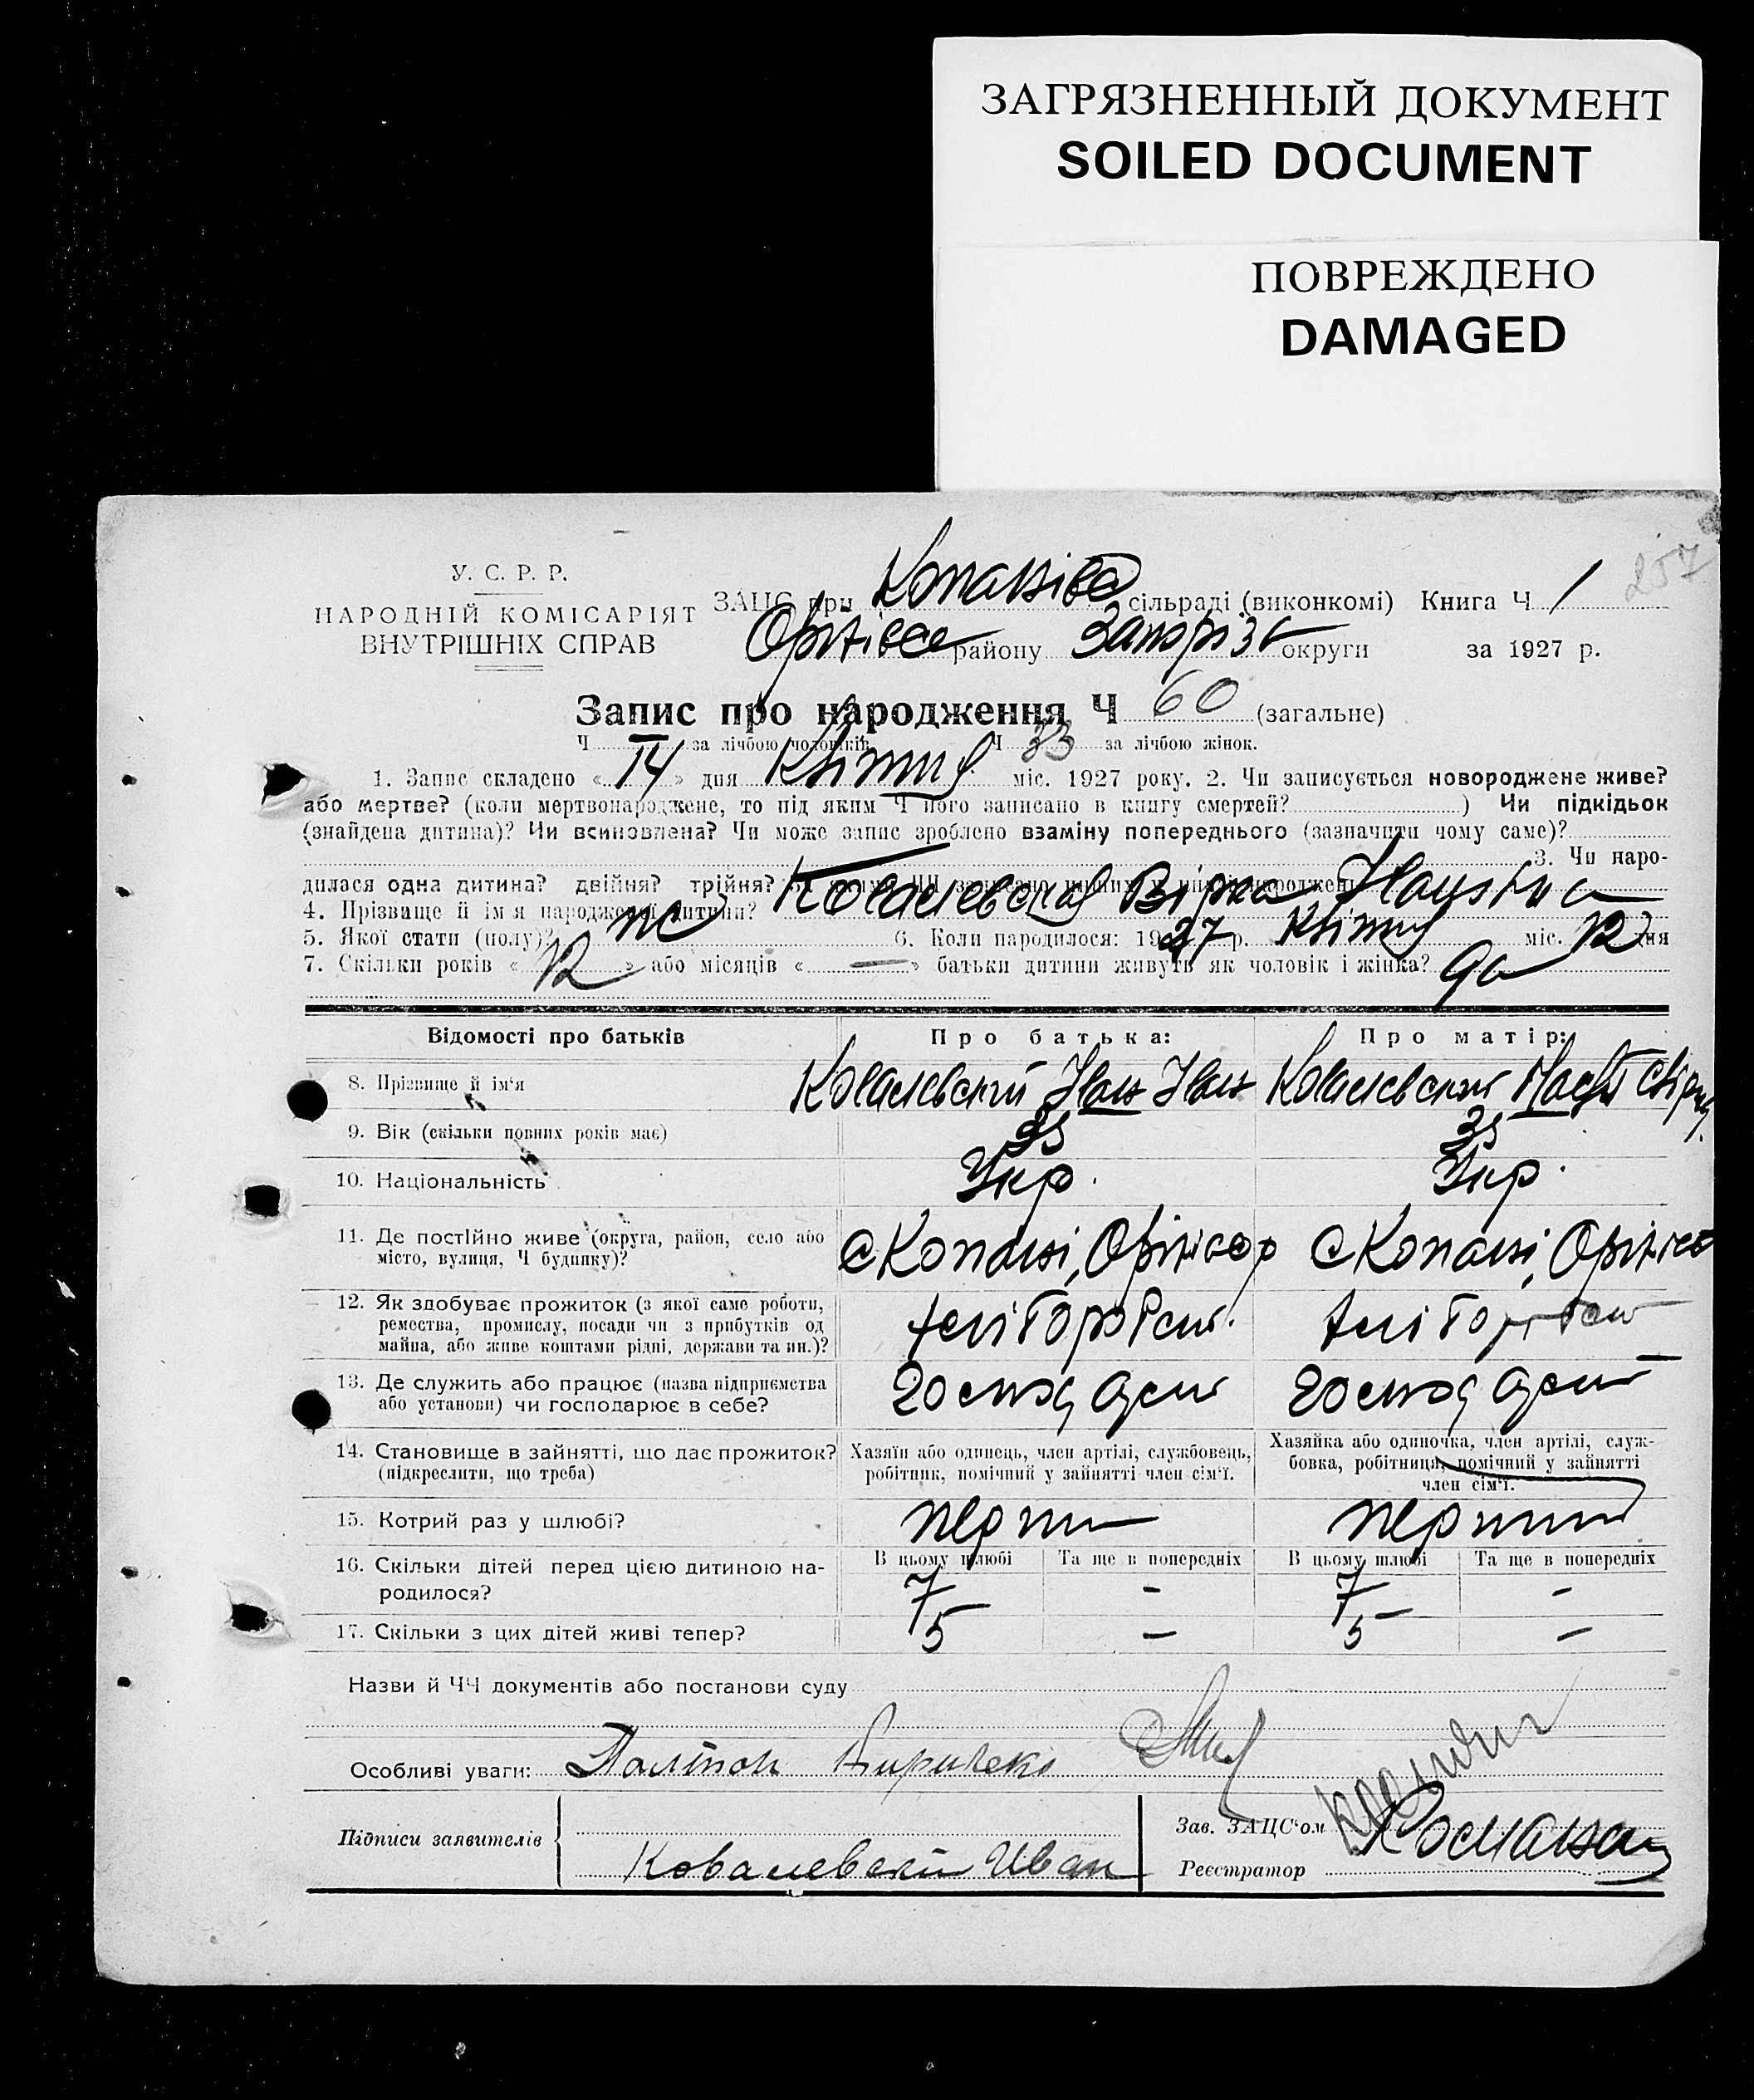 ЗАГРЯЗНЕННЫЙ ДОКУМЕНТ
SOILED DOCUMENT
ПОВРЕЖДЕНО
DAMAGED
257
У. С. Р. Р.
НАРОДНІЙ КОМІСАРІЯТ
ВНУТРІШНІХ СПРАВ
ЗАЦС при Копанівс сільраді (виконкомі) Книга Ч 1
Оріхівсс району Запоріз округи за 1927 р.
Запис про народження Ч 60 (загальне)
Ч за лічбою чоловіків Ч 33 за лічбою жінок.
1. Запис складено « 14 » дня Квітня міс. 1927 року. 2. Чи записується новороджене живе?
або мертве? (коли мертвонароджене, то під яким Ч його записано в книгу смертей? ) Чи підкідьок
(знайдена дитина)? Чи всиновлена? Чи може запис зроблено взаміну попереднього (зазначити чому саме)?
3. Чи наро-
дилася одна дитина? двійня? трійня?
4. Прізвище й ім'я народженої дитини? Ковалевская Віра Ивановна
5. Якої стати (полу)? жс 6. Коли народилося: 1927 р. Квітня міс. 12 дня
7. Скільки років « 12 » або місяців « — » батьки дитини живуть як чоловік і жінка? да
Відомості про батьків Про батька: Про матір:
8. Прізвище й ім'я Ковалевский Иван Иван Ковалевская
9. Вік (скільки повних років має) 35 35
10. Національність Укр. Укр.
11. Де постійно живе (округа, район, село або
місто, вулиця, Ч будинку)? с Копані, Оріхівс р с Копані, Оріхівс
12. Як здобуває прожиток (з якої саме роботи,
ремества, промислу, посади чи з прибутків од
майна, або живе коштами рідні, держави та ин.)?
13. Де служить або працює (назва підприємства
або установи) чи господарює в себе?
14. Становище в зайнятті, що дає прожиток?
(підкреслити, що треба)
Хазяїн або одинець, член артілі, службовець,
робітник, помічний у зайнятті член сім'ї.
Хазяйка або одиночка, член артілі, служ-
бовка, робітниця, помічний у зайнятті
член сім'ї.
15. Котрий раз у шлюбі? перши перший
16. Скільки дітей перед цією дитиною на-
родилося?
В цьому шлюбі Та ще в попередніх В цьому шлюбі Та ще в попередніх
7 - 7 -
17. Скільки з цих дітей живі тепер? 5 — 5 —
Назви й ЧЧ документів або постанови суду
Особливі уваги:
Підписи заявителів Ковалевский Иван
Зав. ЗАЦС'ом
Реєстратор